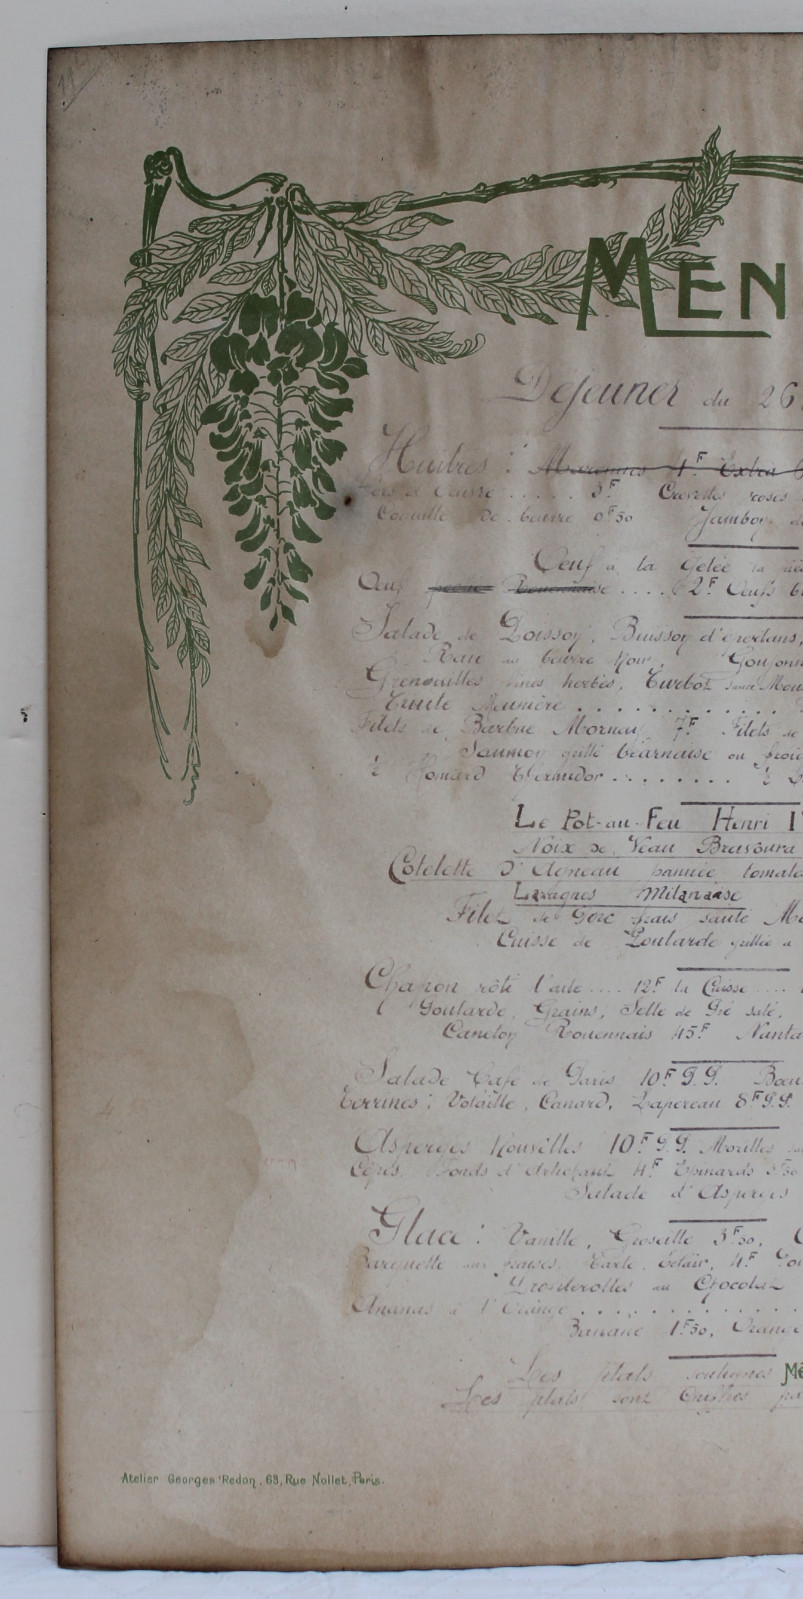 MEN
Déjeuner du 26
Huîtres : Marennes 4F Extra
3F Crevettes roses
Coquille de beurre 0F50 Jambon
Oeuf à la Gelée la
Oeuf 2F Oeufs
Salade de Poisson, Buisson d'éperlans,
Raie au beurre Noir, Goujon
Grenouilles fines herbes, Turbot
Truite Meunière
Filets de Barbue Mornay 7F Filets de
Saumon grillé béarnaise ou froid
½ Homard Thermidor ½
Le Pot-au-Feu Henri I
Noix de Veau
Côtelette d'Agneau pannée tomate
Lasagnes Milanaise
Filet de Porc frais sauté
Cuisse de Poularde grillée à
Chapon rôti l'aile 12F la Cuisse
Poularde, Grains, Selle de Pré salé,
Caneton Rouennais 45F Nanta
Salade Café de Paris 10F P.P. Boeu
Terrines : Volaille, Canard, Lapereau 8F P.P.
Asperges Nouvelles 10F P.P. Morilles
Cèpes, Fonds d'Artichaut 4F Epinards 3F50
Salade d'Asperges
Glace : Vanille, Groseille 3F50,
Barquette aux fraises, Tarte, éclair, 4F
Profiterolles au Chocolat
Ananas à l'Orange
Banane 1F50, Orange
Les plats soulignés
Les plats sont Chiffrés
Atelier Georges Redon, 63, Rue Nollet, Paris.